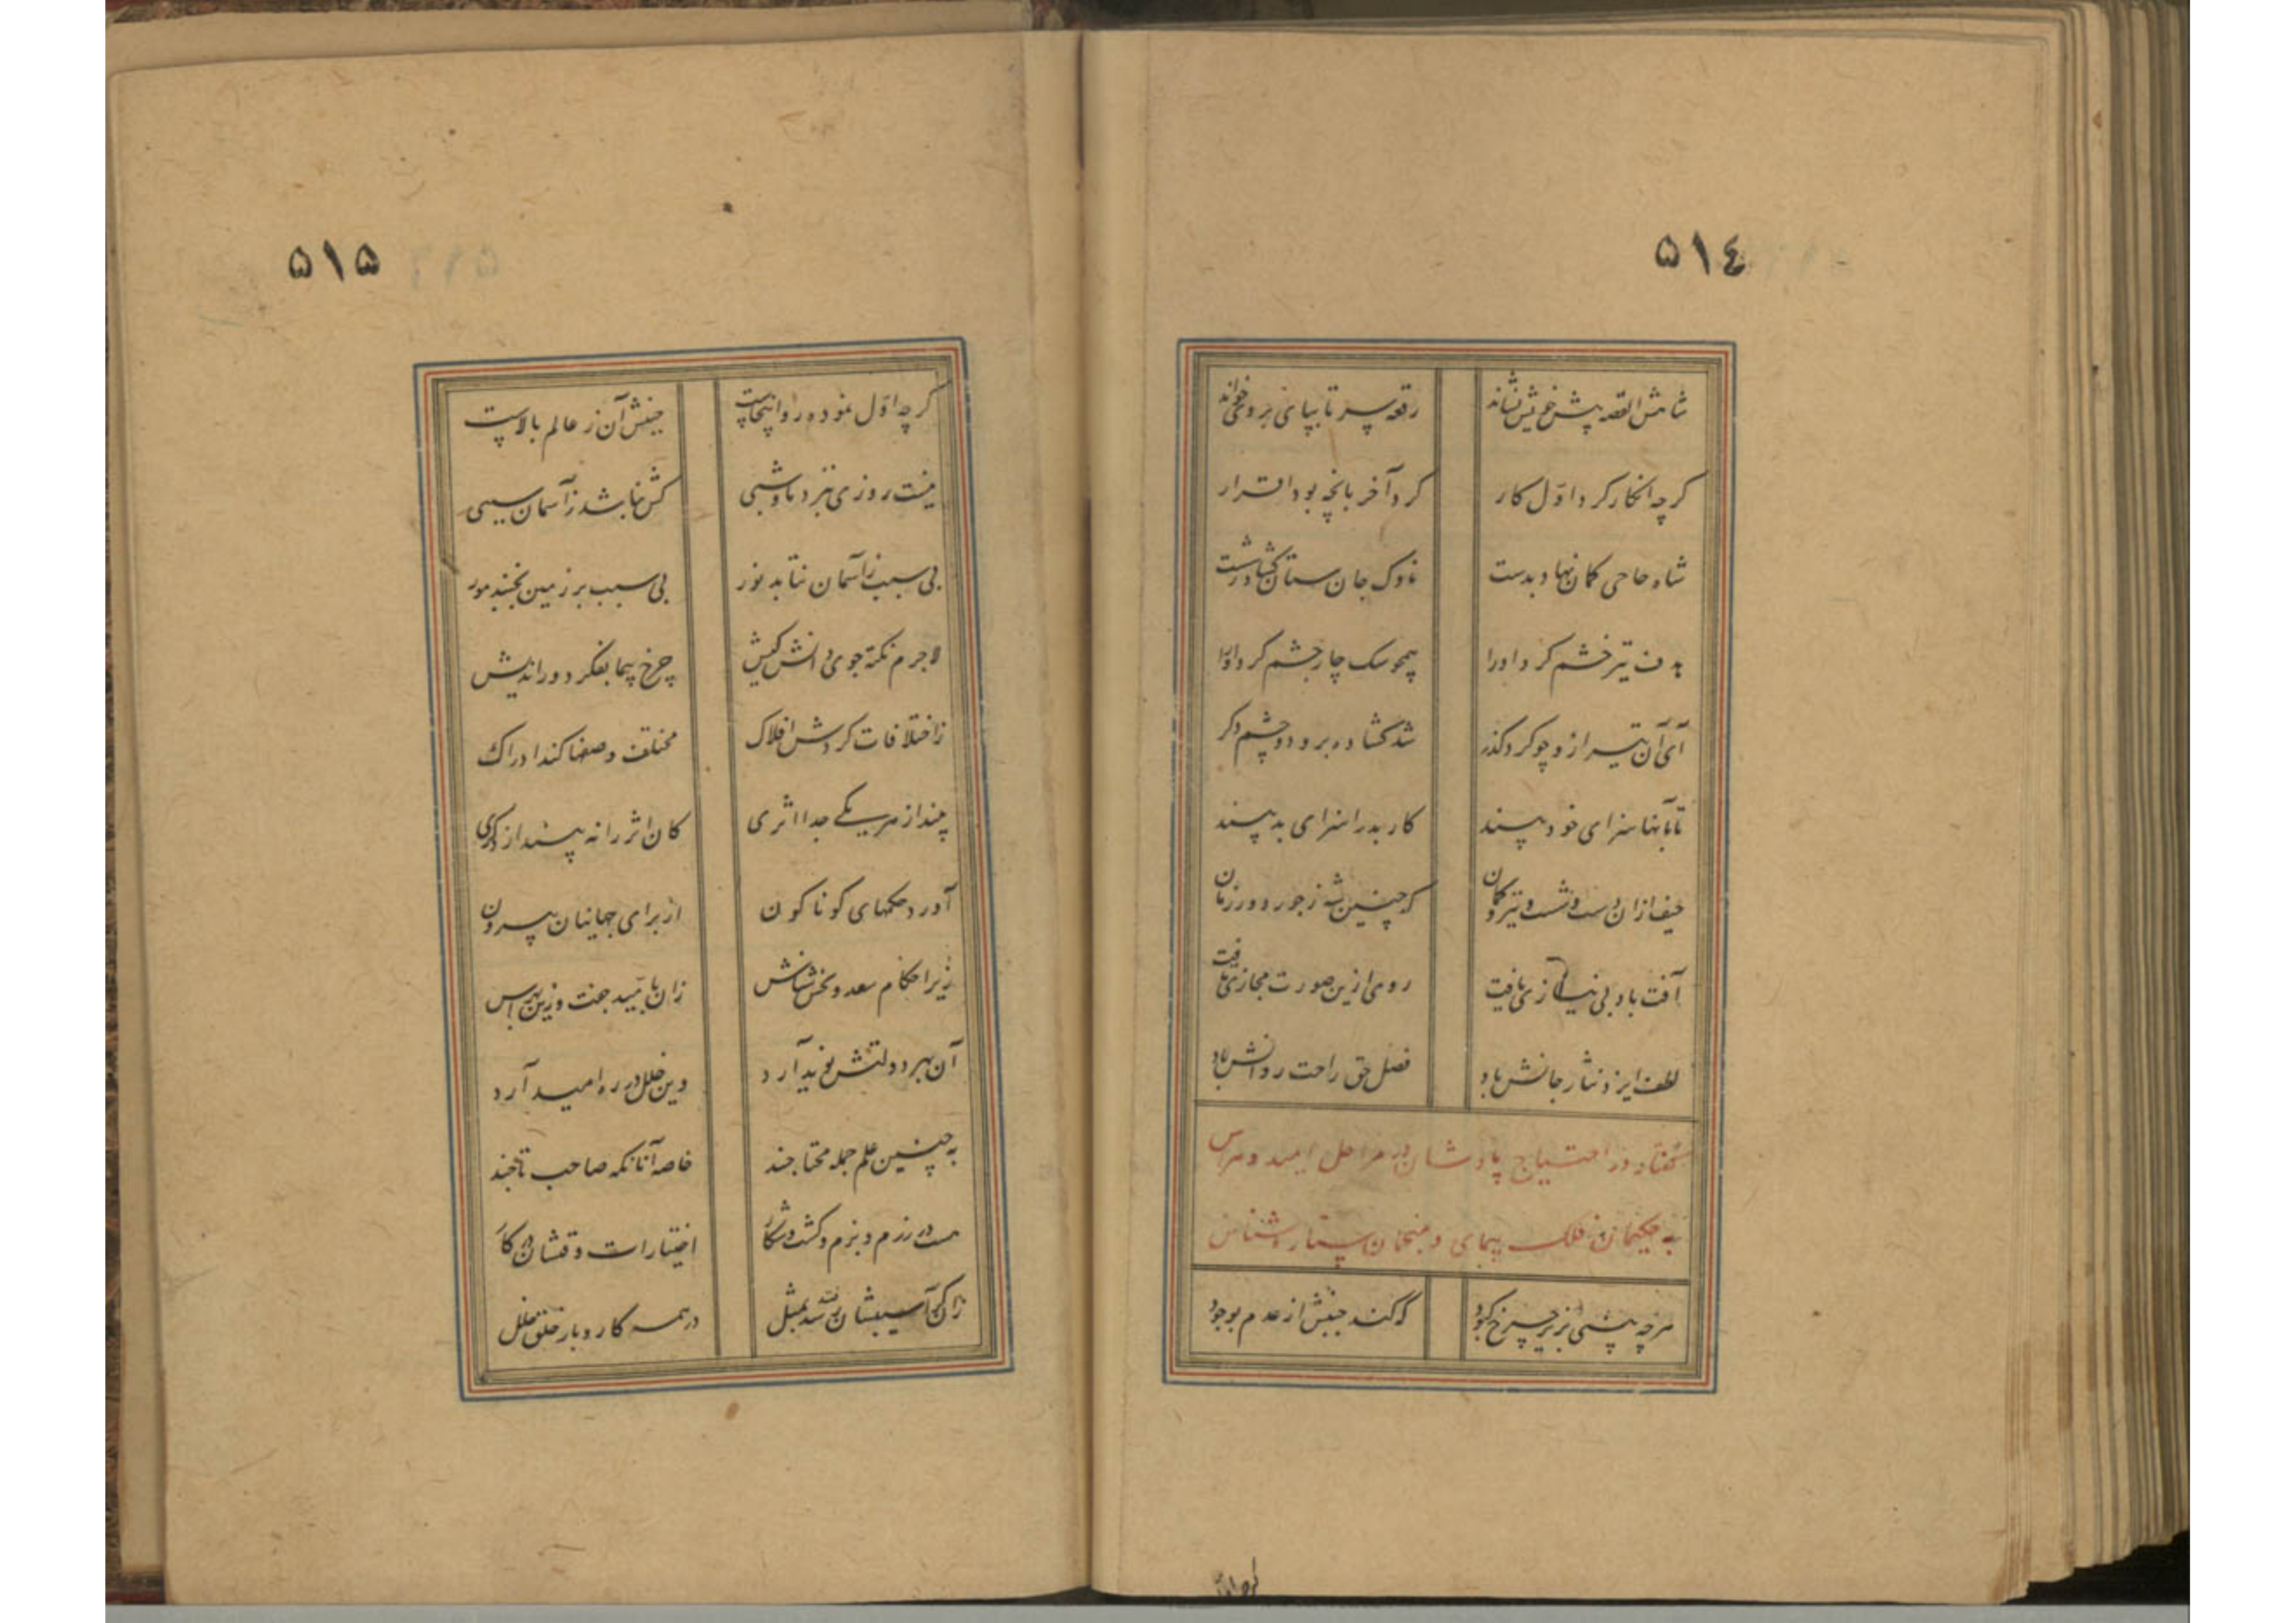 ٥١٤
شاهش القصه پیش خویش نشاند
رقعه سر تا بپای بروی خواند
گرچه انکار کرد اول کار
کرد آخر بانچه بود اقرار
شاه حاجی کمان نهاد بدست
ناوک جان ستان گشاد ز شست
هدف تیر خشم کرد او را
همچو سک چار چشم کرد او را
آی آن تیر ازو چو کرد گذر
شد گشاده برو دو چشم دگر
تا بآنها سزای خود بیند
کار بد را سزای بد بیند
حیف ازان دست و شست و تیر و کمان
که چنین شد ز جور دور زمان
آفت باد بی نیازی یافت
روی ازین صورت مجازی تافت
لطف ایزد نثار جانش باد
فضل حق راحت روانش باد
گفتار در احتیاج پادشاهان در مراحل امید و هراس
به حکیمان فلک پیمای و منجمان ستاره شناس
هرچه بینی بزیر چرخ کبود
که کند جنبش از عدم بوجود
گرچه اول
٥١٥
گرچه اول نموده رو اینجاست
جنبش آن ز عالم بالاست
نیست روزی نبرد ماه و شبی
کش نباشد ز آسمان سببی
بی سبب ز آسمان نتابد نور
بی سبب بر زمین نجنبد مور
لاجرم نکته جوی دانش کیش
چرخ پیما بفکر دور اندیش
ز اختلافات گردش افلاک
مختلف وصفها کند ادراک
بیند از هر یکی جدا اثری
کان اثر را نه بیند از دگری
آورد حکمهای گوناگون
از برای جهانیان بیرون
زیر احکام سعد و نحس شناس
زان بامید جفت و زین بهراس
آن بهر دولتش نوید آرد
وین خلل در ره امید آرد
به چنین علم جمله محتاجند
خاصه آنانکه صاحب تاجند
هست در رزم و بزم و گشت و شکار
اختیارات وقتشان در کار
زانکه آسیبشان رسد بمثل
در همه کار و بار خلق خلل